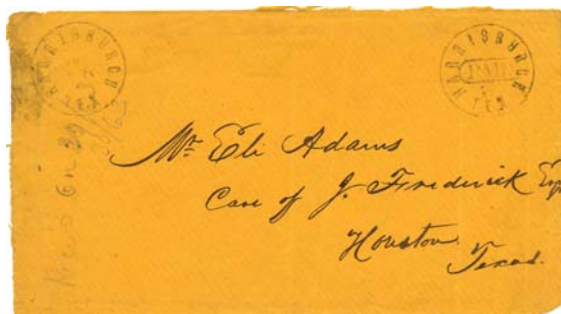 HARRISBURGH
TEX
HARRISBURGH
PAID
TEX
Mr. Eli Adams
Care of J. Frederick Esq
Houston
Texas.